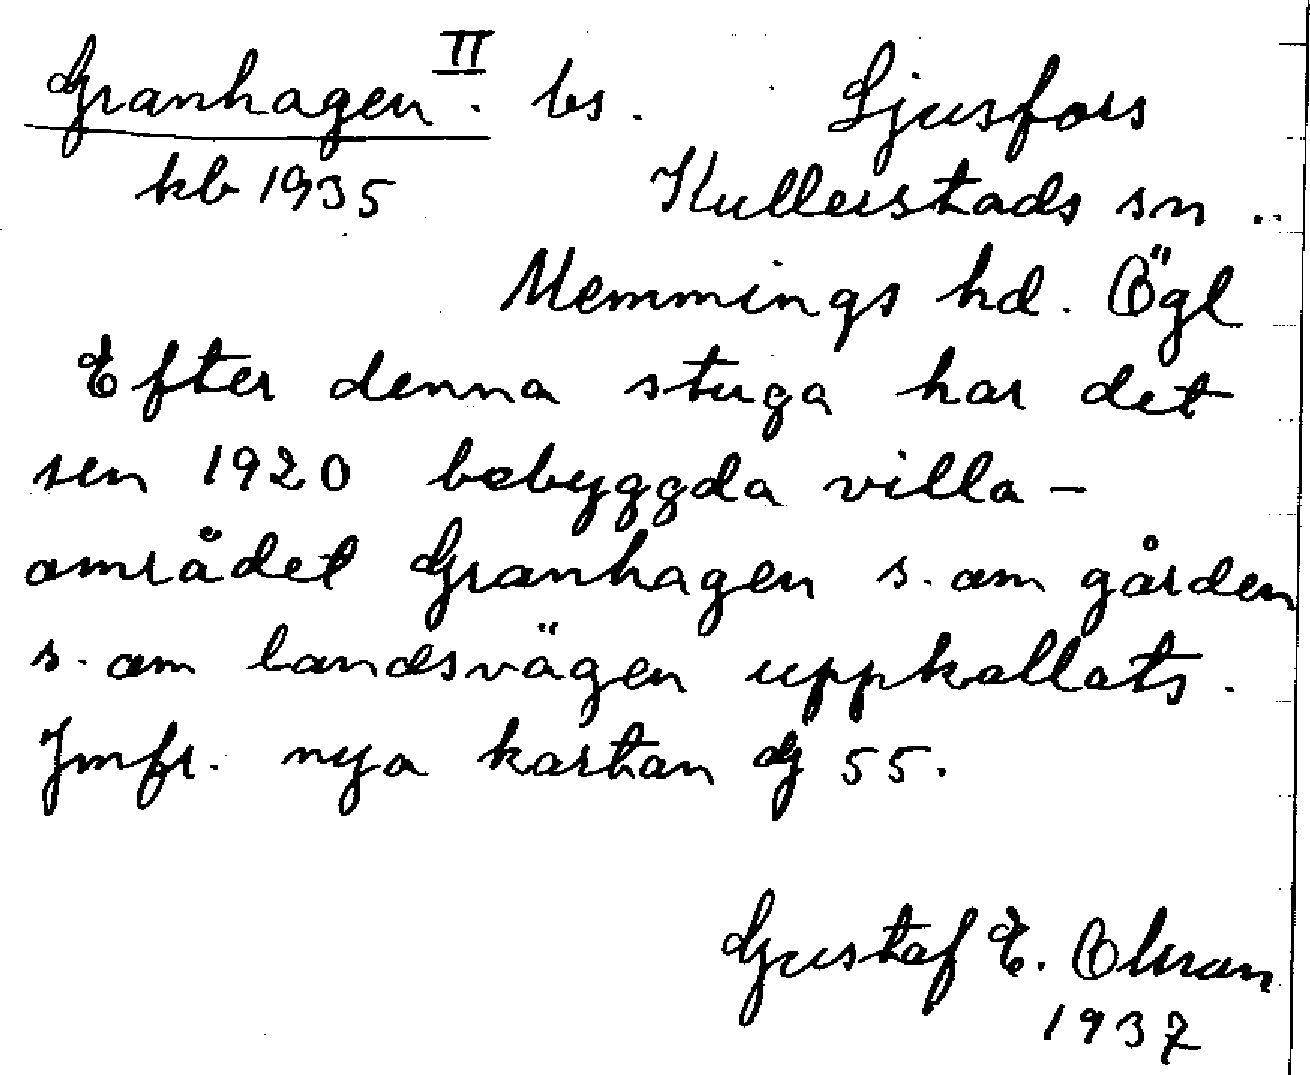 Granhagen II. bs. Ljusfors
kb 1935 Kullerstads sn.
Memmings hd. Ögl
Efter denna stuga har det
sen 1920 bebyggda villa-
området Granhagen s. om gården
s. om landsvägen uppkallats.
Jmfr. nya kartan G 55.
Gustaf E. Olsson
1937